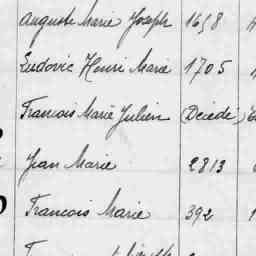 Auguste Marie Joseph 1658
Ludovic Henri Marie 1705
Francois Marie Julien (Décédé)
Jean Marie 2813
Francois Marie 392